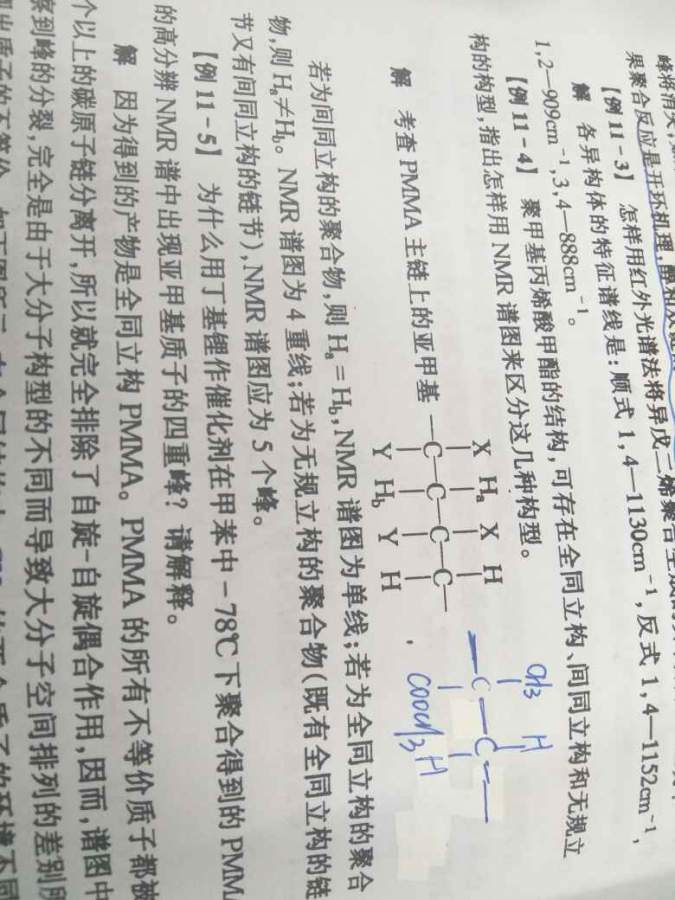 峰将消失,
果聚合反应是开环机理,
【例 11-3】 怎样用红外光谱法将异戊二烯聚合生成的
解 各异构体的特征谱线是:顺式 1,4—1130cm⁻¹,反式 1,4—1152cm⁻¹,
1,2—909cm⁻¹,3,4—888cm⁻¹。
【例 11-4】 聚甲基丙烯酸甲酯的结构,可存在全同立构、间同立构和无规立
构的构型,指出怎样用 NMR 谱图来区分这几种构型。
X Hₐ X H
解 考查 PMMA 主链上的亚甲基 —C—C—C—C—
Y H_b Y H
CH3 H
—C—C—
COOCH3 H
若为间同立构的聚合物,则 Hₐ=H_b,NMR 谱图为单线;若为全同立构的聚合
物,则 Hₐ≠H_b。NMR 谱图为 4 重线;若为无规立构的聚合物(既有全同立构的链
节又有间同立构的链节),NMR 谱图应为 5 个峰。
【例 11-5】 为什么用丁基锂作催化剂在甲苯中-78℃下聚合得到的 PMMA
的高分辨 NMR 谱中出现亚甲基质子的四重峰?请解释。
解 因为得到的产物是全同立构 PMMA。PMMA 的所有不等价质子都被
个以上的碳原子链分离开,所以就完全排除了自旋-自旋偶合作用,因而,谱图中
察到峰的分裂,完全是由于大分子构型的不同而导致大分子空间排列的差别所
质子的不等价